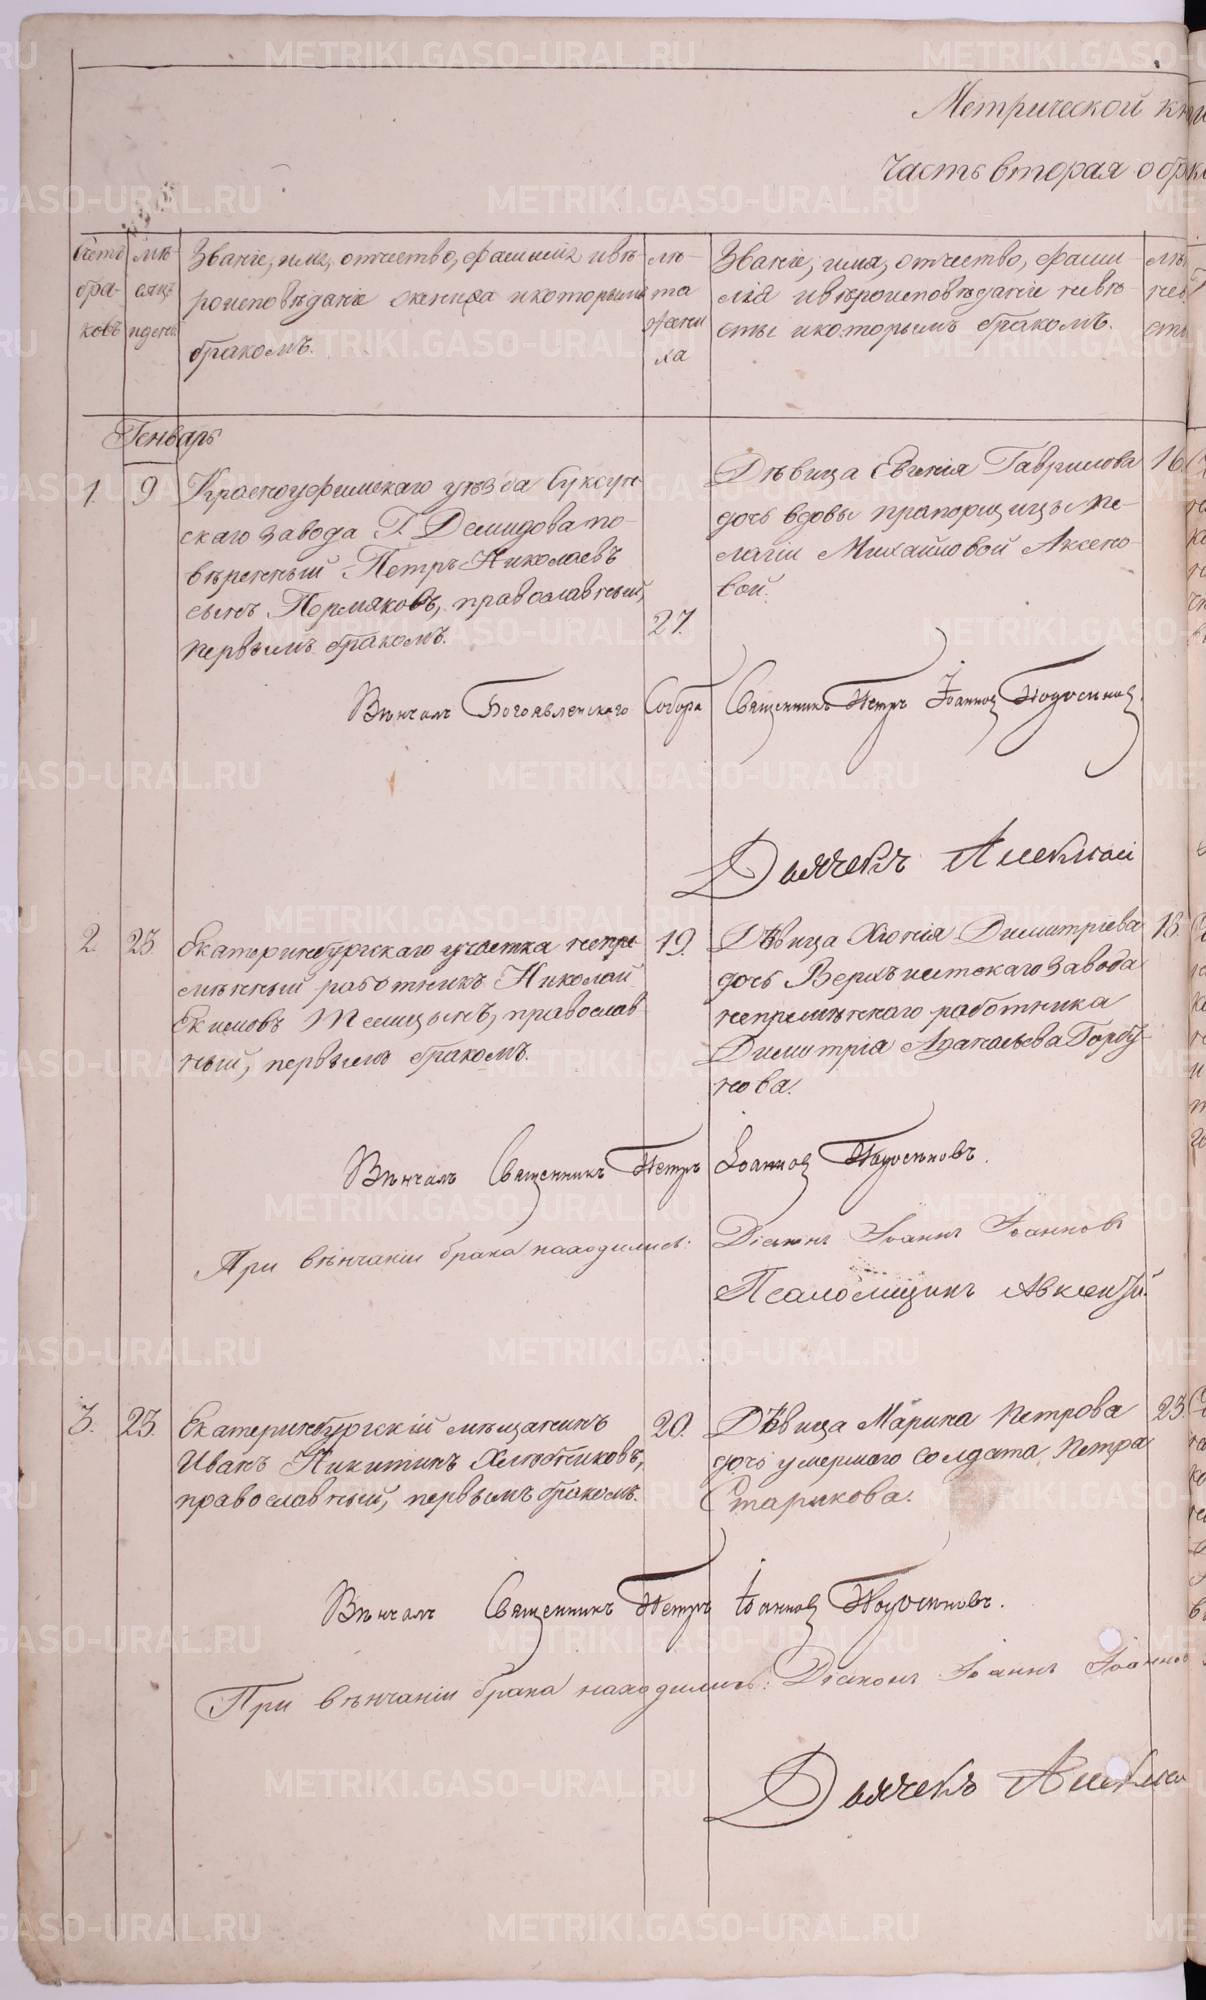 Метрической кни
Часть вторая о брк
Счетъ браковъ
мѣсяцъ и день
Званіе, имя, отчество, фамилія и вѣ-
роисповѣданіе жениха и которымъ
бракомъ.
лѣ-
та
жени
ха
Званіе, имя, отчество, фами-
лія и вѣроисповѣданіе невѣ-
сты и которымъ бракомъ.
лѣт
нев
сты
Генварь
1.
9
Красноуфимскаго уѣзда Суксун-
скаго завода Г. Демидова по-
вѣренный Петръ Николаевъ
сынъ Пермяковъ, православный,
первымъ бракомъ.
27.
Дѣвица Евгенія Гаврилова
дочь вдовы прапорщицы Пе-
лагіи Михайловой Аксено-
вой.
16
Вѣнчалъ Богоявленскаго Собора Священникъ Петръ Іоанновъ
Дьячекъ
2.
23.
Екатеринбургскаго участка непре
мѣнный работникъ Николай
Екимовъ Темицынъ, православ
ный, первымъ бракомъ.
19.
Дѣвица Хіонія Димитріева
дочь Верхъ исетскаго завода
непремѣннаго работника
Димитрія Аѳанасьева Горбу-
нова.
18
Вѣнчалъ Священникъ Петръ Іоанновъ
При вѣнчаніи брака находились: Діаконъ Іоаннъ Іоанновъ
Псаломщикъ Авксентій
3.
23.
Екатеринбургскій мѣщанинъ
Иванъ Никитинъ Хлѣбниковъ,
православный, первымъ бракомъ.
20.
Дѣвица Марина Петрова
дочь умершаго солдата Петра
Старикова.
23
Вѣнчалъ Священникъ Петръ Іоанновъ
При вѣнчаніи брака находились: Діаконъ Іоаннъ Іоаннов
Дьячекъ
METRIKI.GASO-URAL.RU